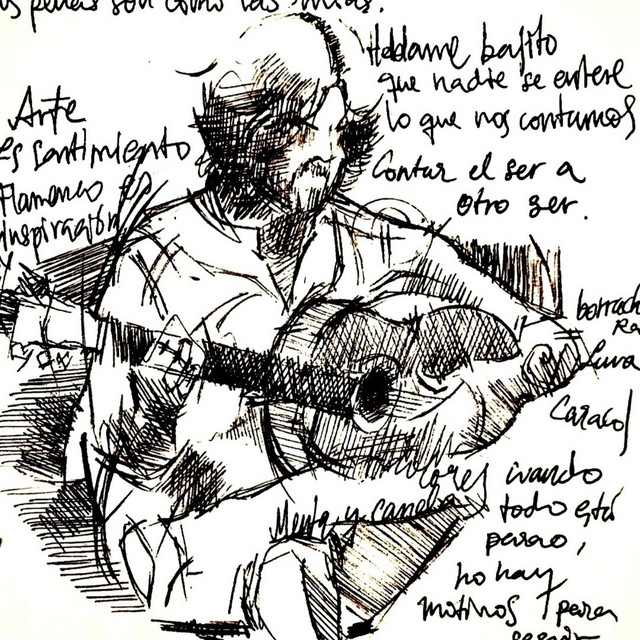 penas son como las mías.
Háblame bajito
que nadie se entere
lo que nos contamos
Contar el ser a
otro ser.
Arte
es sentimiento
Flamenco es
inspiración
y
borrach
Ra
Luna
Caracol
Menta y canela
cuando
todo está
no hay
motivos para